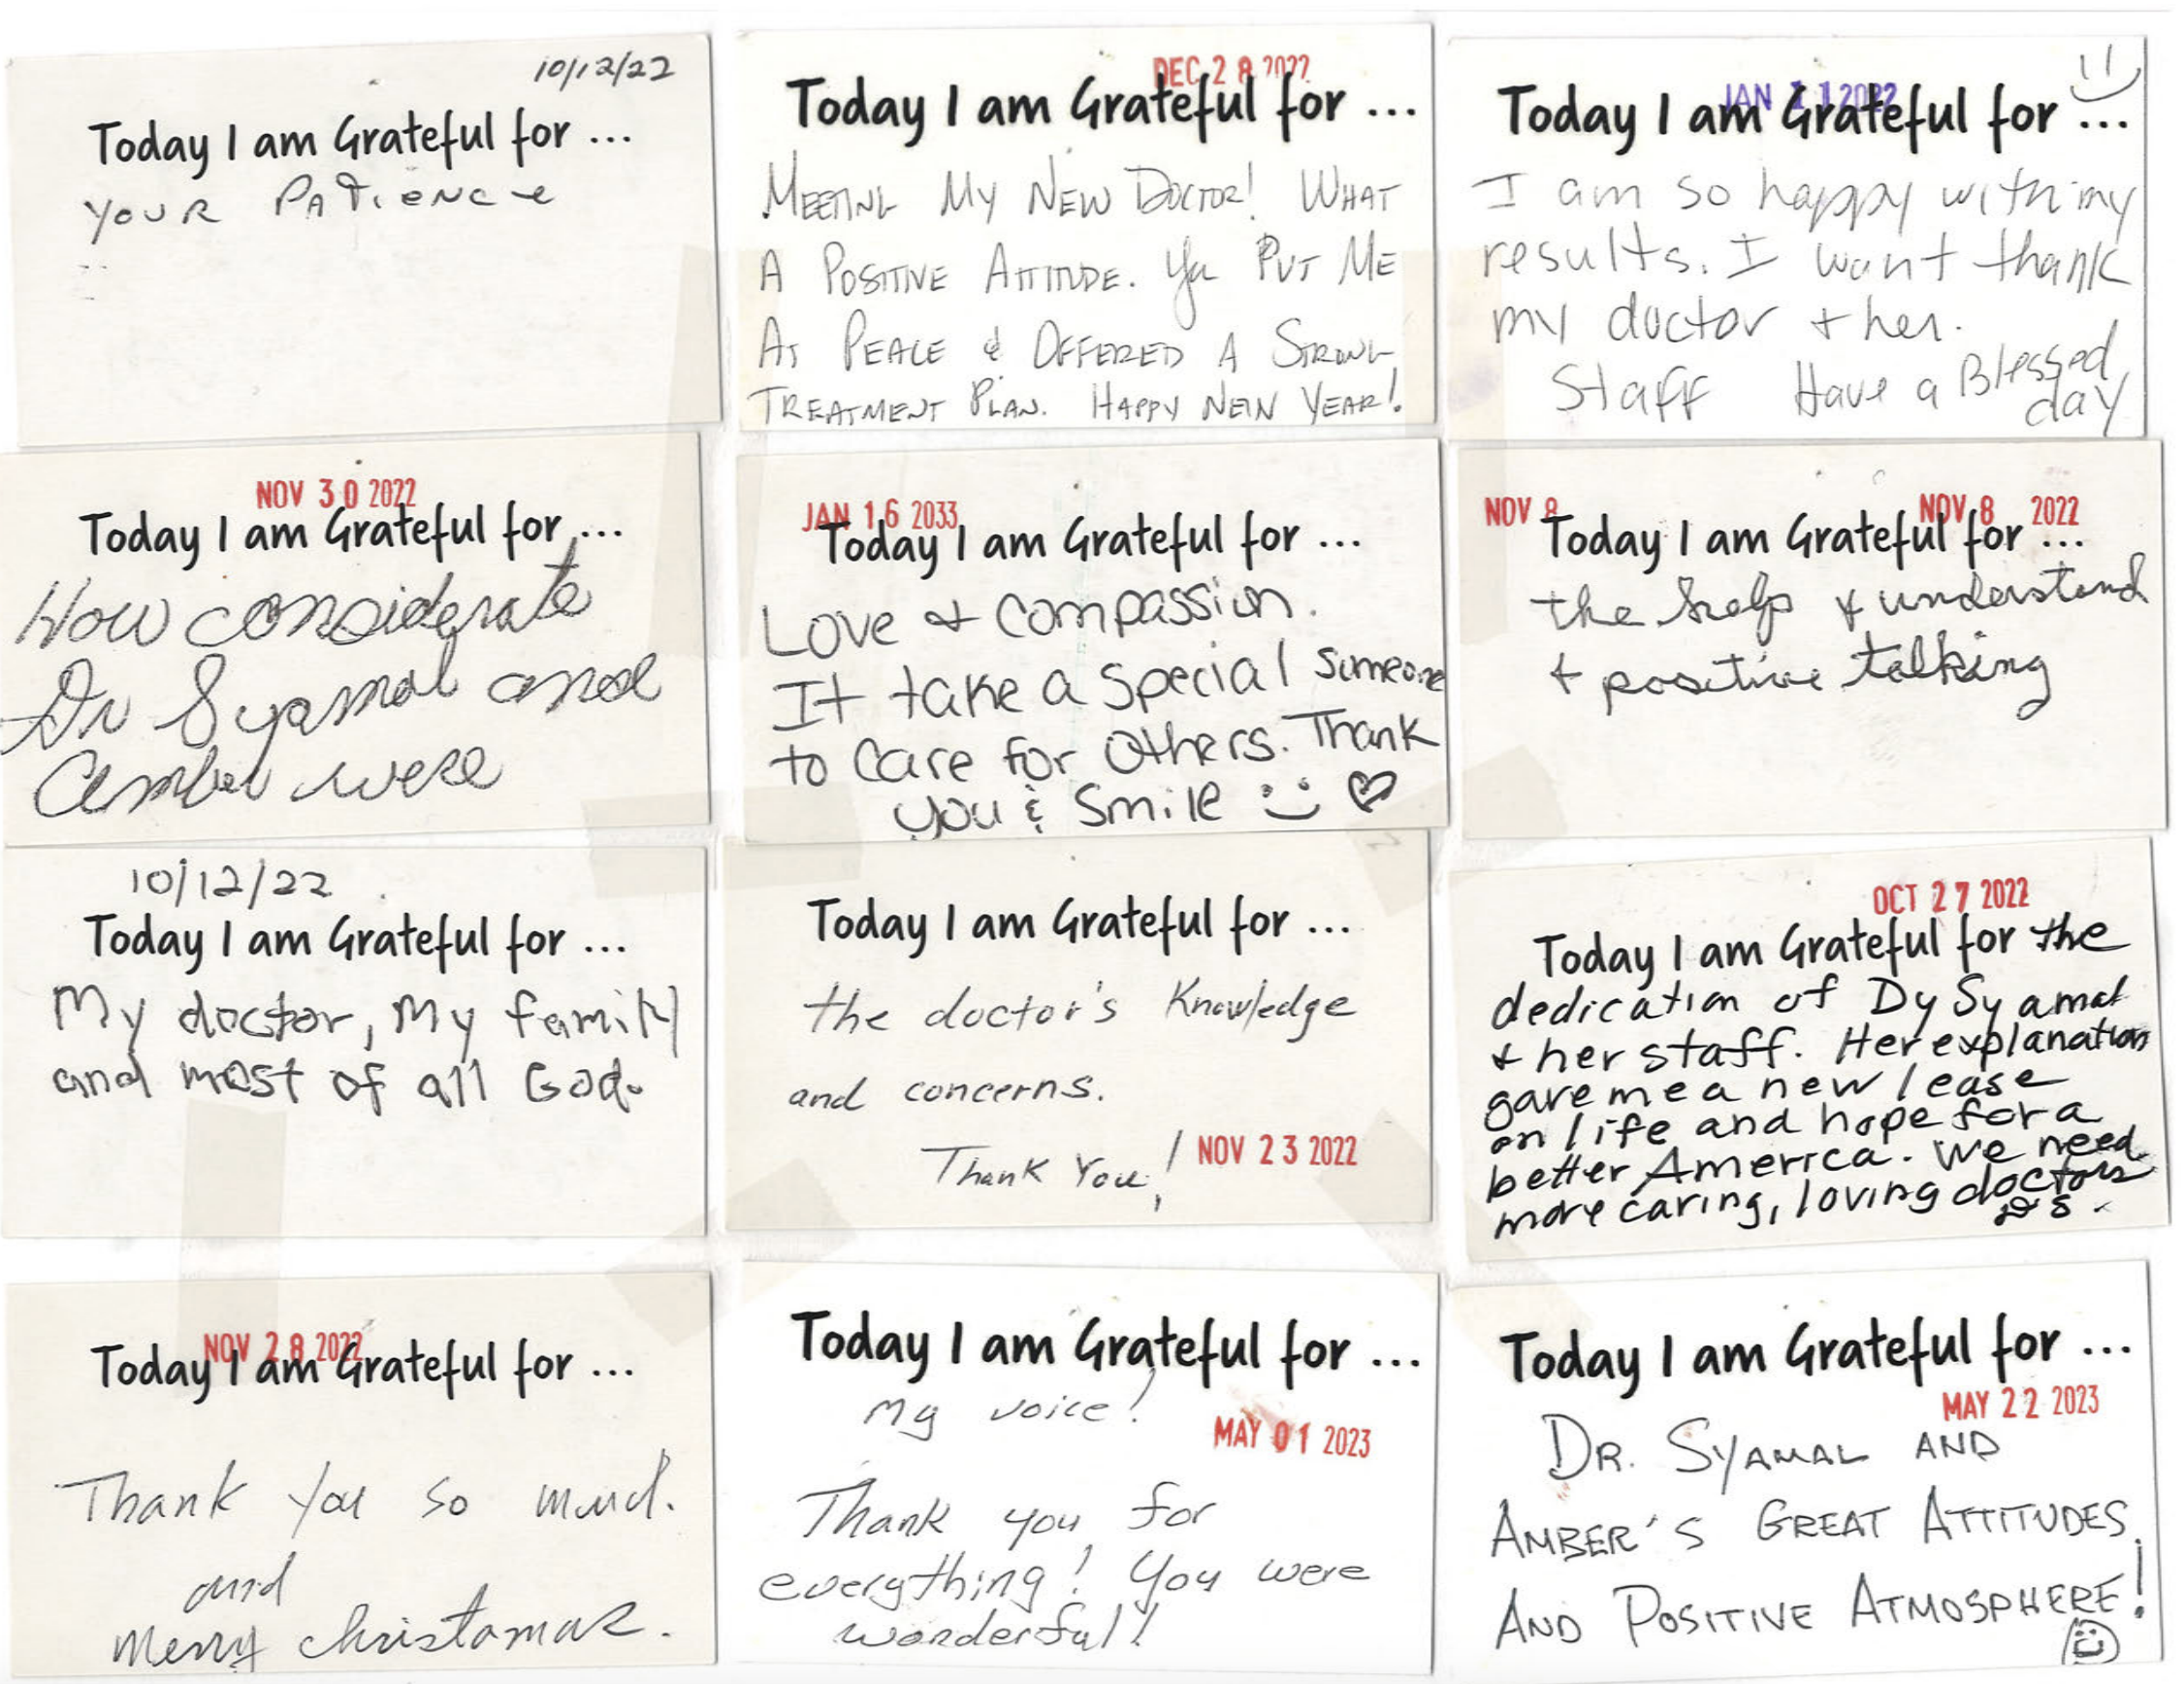 10/12/22
Today I am Grateful for ...
YOUR PATIENCE
DEC 28 2022
Today I am Grateful for ...
MEETING MY NEW DOCTOR! WHAT
A POSITIVE ATTITUDE. You PUT ME
AT PEACE & OFFERED A STRONG
TREATMENT PLAN. HAPPY NEW YEAR!
JAN 11 2022
Today I am Grateful for ...
I am so happy with my
results. I want thank
my doctor + her.
Staff Have a Blessed
day
NOV 30 2022
Today I am Grateful for ...
How considerate
Dr Syamal and
Amber were
JAN 16 2033
Today I am Grateful for ...
Love + compassion.
It take a special someone
to care for others. Thank
you & Smile
NOV 8 NOV 8 2022
Today I am Grateful for ...
the help & understand
+ positive talking
10/12/22
Today I am Grateful for ...
My doctor, My family
and most of all God.
Today I am Grateful for ...
the doctor's Knowledge
and concerns.
Thank You!
NOV 23 2022
OCT 27 2022
Today I am Grateful for the
dedication of Dy Syamal
+ her staff. Her explanation
gave me a new lease
on life and hope for a
better America. We need
more caring, loving doctors
NOV 28 2022
Today I am Grateful for ...
Thank You so much.
and
Merry Christamas.
Today I am Grateful for ...
My voice!
MAY 01 2023
Thank you for
everything! You were
wonderful!
Today I am Grateful for ...
MAY 22 2023
DR. SYAMAL AND
AMBER'S GREAT ATTITUDES
AND POSITIVE ATMOSPHERE!